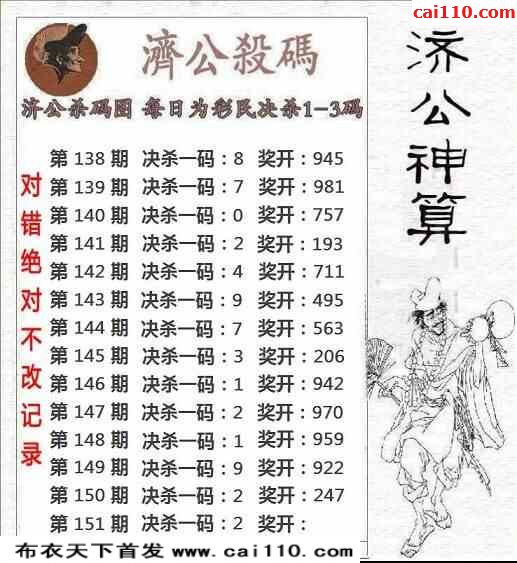 cai110.com
濟公殺碼
济公杀码图 每日为彩民决杀1-3码
济公神算
对错绝对不改记录
第 138 期 决杀一码：8 奖开：945
第 139 期 决杀一码：7 奖开：981
第 140 期 决杀一码：0 奖开：757
第 141 期 决杀一码：2 奖开：193
第 142 期 决杀一码：4 奖开：711
第 143 期 决杀一码：9 奖开：495
第 144 期 决杀一码：7 奖开：563
第 145 期 决杀一码：3 奖开：206
第 146 期 决杀一码：1 奖开：942
第 147 期 决杀一码：2 奖开：970
第 148 期 决杀一码：1 奖开：959
第 149 期 决杀一码：9 奖开：922
第 150 期 决杀一码：2 奖开：247
第 151 期 决杀一码：2 奖开：
布衣天下首发 www.cai110.com